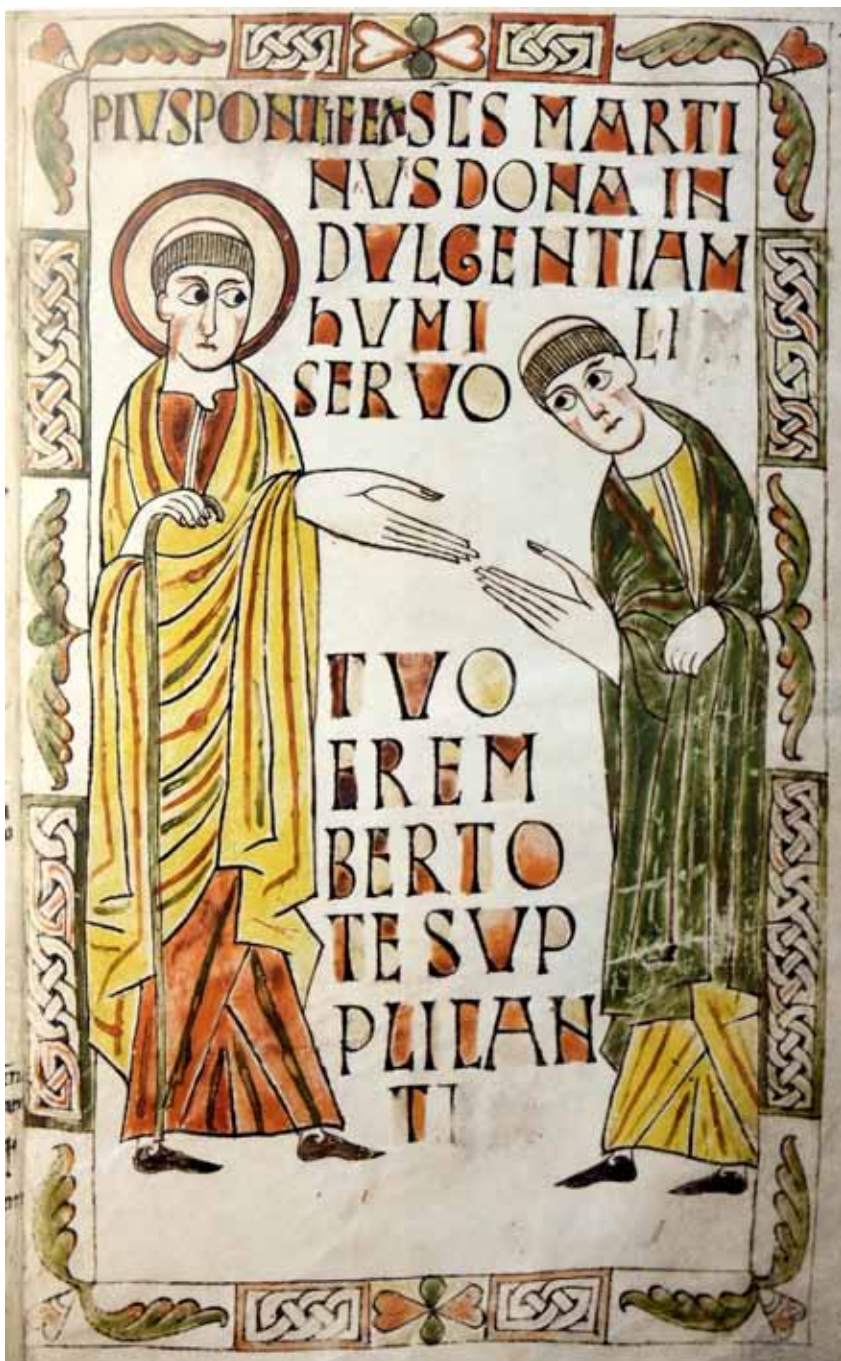 PIVSPONTIFEX SCS MARTI
NVS DONA IN
DVLGENTIAM
hVMI LI
SERVO
TVO
EREM
BERTO
TE SVP
PLICAN
TI